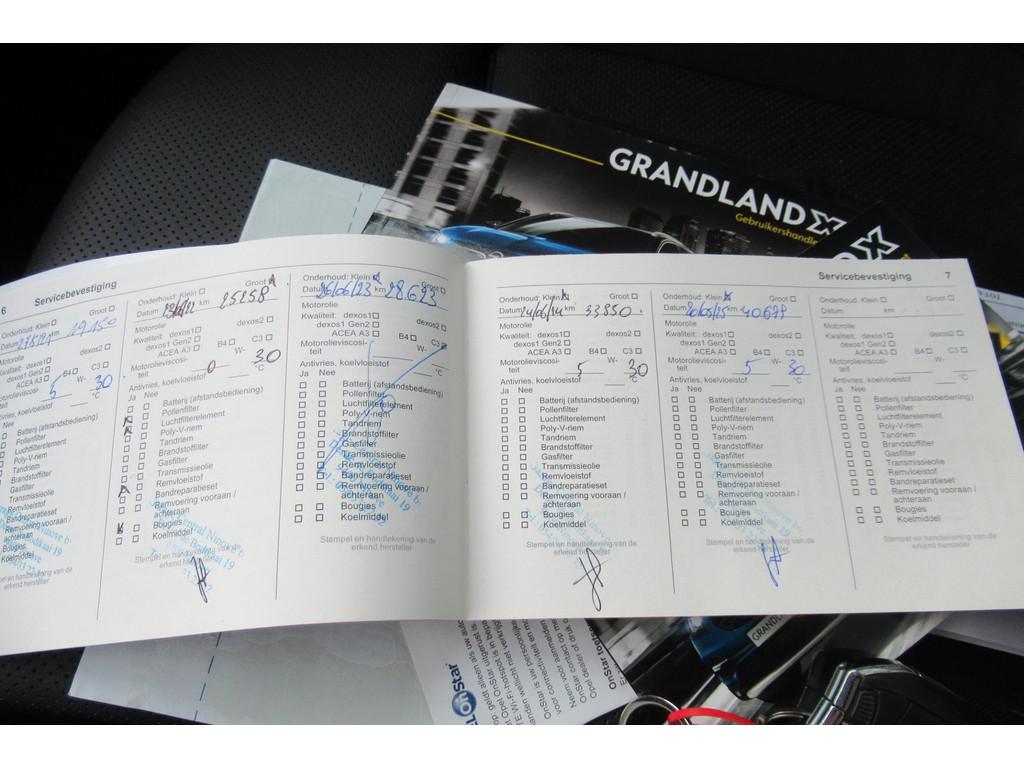 GRANDLAND X
Gebruikershandle
X
6 Servicebevestiging
Onderhoud: Klein Groot
Datum km 19.150
Motorolie
Kwaliteit: dexos1
dexos1 Gen2
ACEA A3
Motorolieviscosi-
teit 5 30
Antivries, koelvloeistof
Ja Nee
Batterij (afstandsbediening)
Pollenfilter
Luchtfilterelement
Poly-V-riem
Tandriem
Brandstoffilter
Gasfilter
Transmissieolie
Remvloeistof
Bandreparatieset
Remvoering vooraan /
achteraan
Bougies
Koelmiddel
Stempel en handtekening van de
erkend hersteller
Onderhoud: Klein Groot
Datum km 25258
Motorolie
Kwaliteit: dexos1 dexos2
dexos1 Gen2
ACEA A3 B4 C3
Motorolieviscosi- W-
teit 0 30
Antivries, koelvloeistof °C
Ja Nee
Batterij (afstandsbediening)
Pollenfilter
Luchtfilterelement
Poly-V-riem
Tandriem
Brandstoffilter
Gasfilter
Transmissieolie
Remvloeistof
Bandreparatieset
Remvoering vooraan /
achteraan
Bougies
Koelmiddel
Stempel en handtekening van de
erkend hersteller
Onderhoud: Klein Groot
Datum 26/06/23 km 28.623
Motorolie
Kwaliteit: dexos1 dexos2
dexos1 Gen2
ACEA A3 B4 C3
Motorolieviscosi- W-
teit
Antivries, koelvloeistof °C
Ja Nee
Batterij (afstandsbediening)
Pollenfilter
Luchtfilterelement
Poly-V-riem
Tandriem
Brandstoffilter
Gasfilter
Transmissieolie
Remvloeistof
Bandreparatieset
Remvoering vooraan /
achteraan
Bougies
Koelmiddel
Stempel en handtekening van de
erkend hersteller
Servicebevestiging 7
Onderhoud: Klein Groot
Datum 24/06/24 km 33550
Motorolie
Kwaliteit: dexos1 dexos2
dexos1 Gen2
ACEA A3 B4 C3
Motorolieviscosi- W-
teit 5 30
Antivries, koelvloeistof °C
Ja Nee
Batterij (afstandsbediening)
Pollenfilter
Luchtfilterelement
Poly-V-riem
Tandriem
Brandstoffilter
Gasfilter
Transmissieolie
Remvloeistof
Bandreparatieset
Remvoering vooraan /
achteraan
Bougies
Koelmiddel
Stempel en handtekening van de
erkend hersteller
Onderhoud: Klein Groot
Datum km 40679
Motorolie
Kwaliteit: dexos1 dexos2
dexos1 Gen2
ACEA A3 B4 C3
Motorolieviscosi- W-
teit 5 30
Antivries, koelvloeistof °C
Ja Nee
Batterij (afstandsbediening)
Pollenfilter
Luchtfilterelement
Poly-V-riem
Tandriem
Brandstoffilter
Gasfilter
Transmissieolie
Remvloeistof
Bandreparatieset
Remvoering vooraan /
achteraan
Bougies
Koelmiddel
Stempel en handtekening van de
erkend hersteller
Onderhoud: Klein Groot
Datum km
Motorolie
Kwaliteit: dexos1 dexos2
dexos1 Gen2
ACEA A3 B4 C3
Motorolieviscosi- W-
teit
Antivries, koelvloeistof °C
Ja Nee
Batterij (afstandsbediening)
Pollenfilter
Luchtfilterelement
Poly-V-riem
Tandriem
Brandstoffilter
Gasfilter
Transmissieolie
Remvloeistof
Bandreparatieset
Remvoering vooraan /
achteraan
Bougies
Koelmiddel
Stempel en handtekening van de
erkend hersteller
OnStar
GRANDL